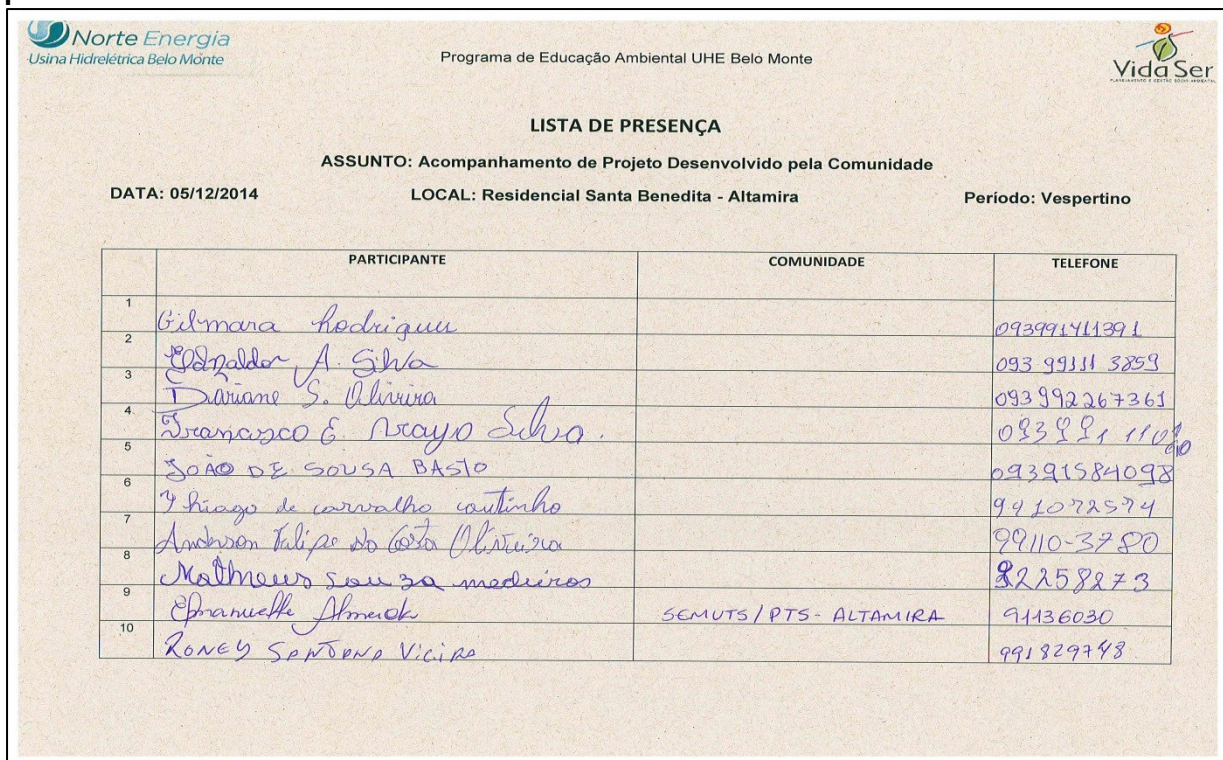 Norte Energia
Usina Hidrelétrica Belo Monte
Programa de Educação Ambiental UHE Belo Monte
Vida Ser
LISTA DE PRESENÇA
ASSUNTO: Acompanhamento de Projeto Desenvolvido pela Comunidade
DATA: 05/12/2014 LOCAL: Residencial Santa Benedita - Altamira Período: Vespertino
PARTICIPANTE COMUNIDADE TELEFONE
1 Gilmara Rodrigues 093991711391
2 A. Silva 093 99111 3859
3 Dariane S. Oliveira 093992267361
4 Francisco E. Araujo Silva.
5 JOÃO DE SOUSA BASTO 093991584098
6 Thiago de carvalho coutinho 991072574
7 Anderson Felipe da Costa Oliveira 99110-3780
8 Matheus souza medeiros 92258273
9 Emanuelle Almeida SEMUTS/PTS-ALTAMIRA 91136030
10 RONEY SANTANA Vieira 991829748